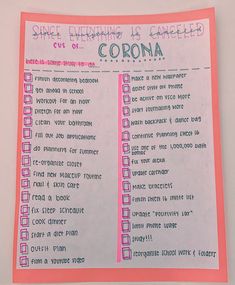 SINCE EVERYTHING IS CANCELED
CUZ OF...
CORONA
here is some stuff to do:
FINISH DECORATING BEDROOM
get ahead in school
WORKOUT FOR an hour
STRETCH FOR an hour
clean your bathroom
FILL OUT JOB applications
do planning for summer
re-organize closet
FIND NEW MAKEUP ROUTINE
nail & skin care
read a book
FIX SLEEP SCHEDULE
COOK DINNER
START a DIET PLAN
OUTFIT PLAN
FILM a YOUTUBE VIDEO
make a new wallpaper
delete stuff off phone
be active on VSCO more
start journaling more
wash backpack & dance bag
continue planning sweet 16
use one of the 1,000,000 bath bombs
fix your
update calendar
make bracelets
finish sweet 16 invite list
update "positivity jar"
limit phone usage
study!!!
reorganize school work & folders